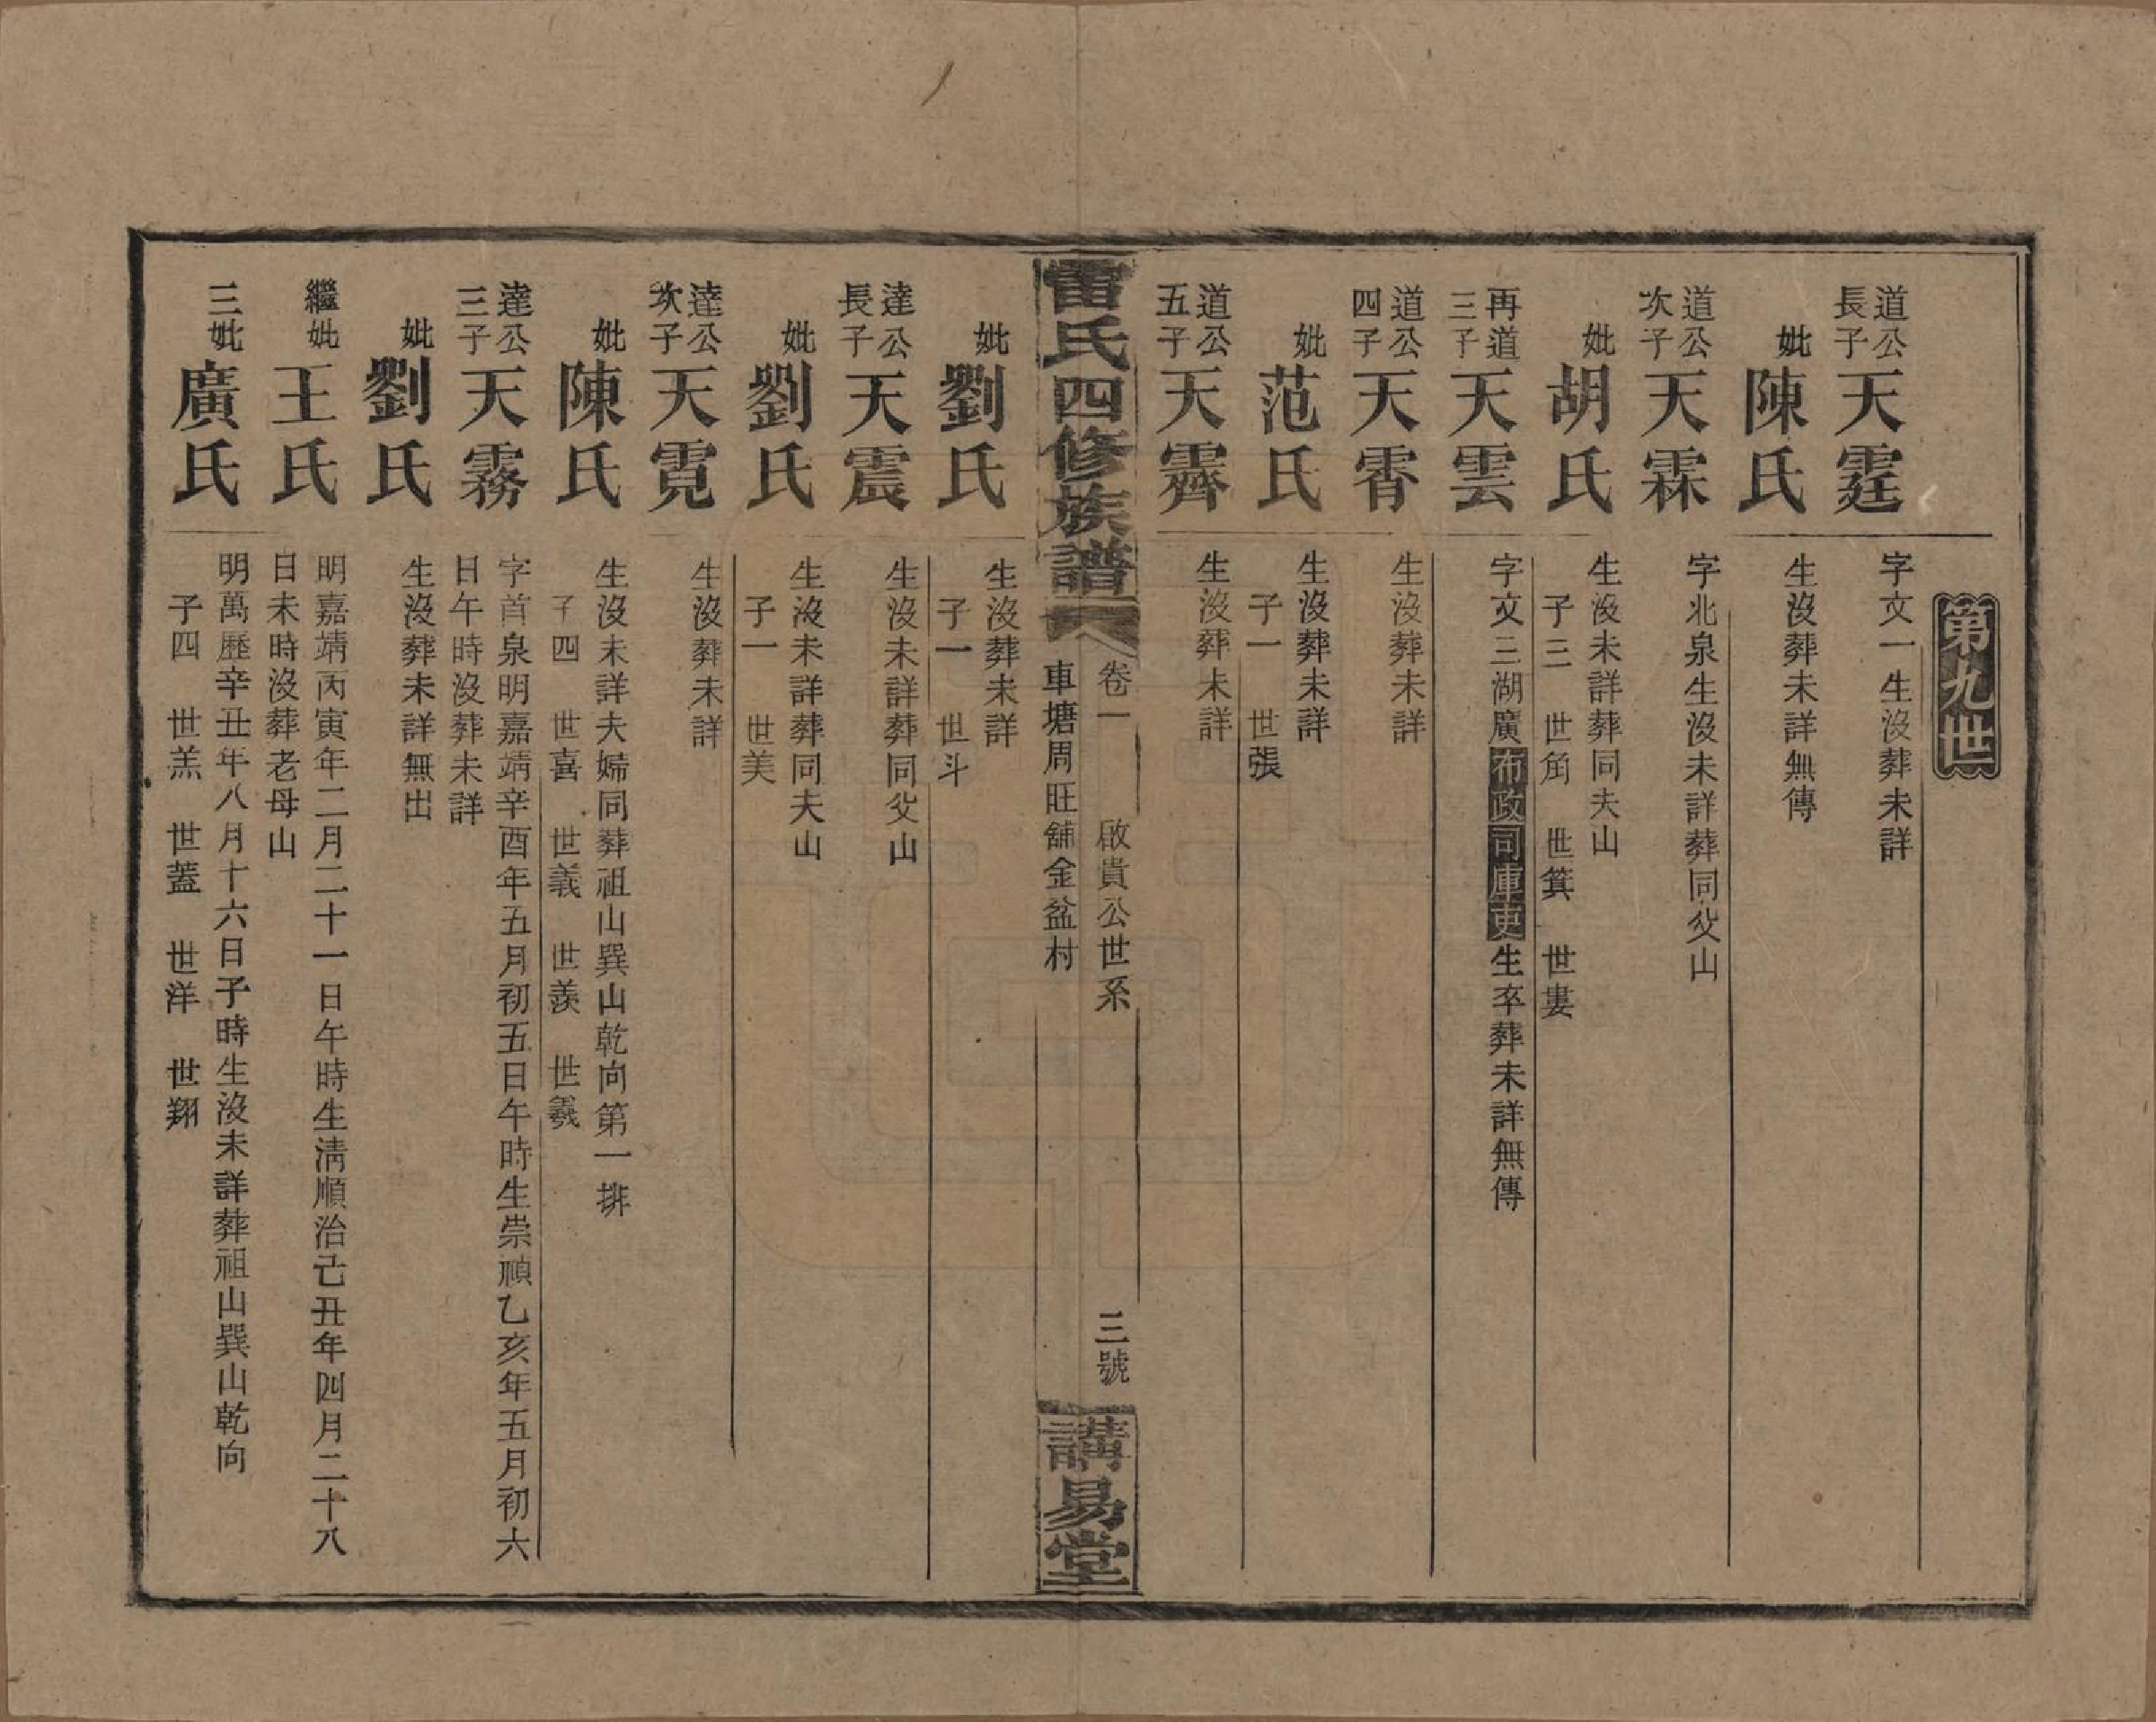 第九世
道公長子天霆
字文一生沒葬未詳
妣陳氏
生沒葬未詳無傳
道公次子天霖
字北泉生沒未詳葬同父山
妣胡氏
生沒未詳葬同夫山
子三　世角　世箕　世婁
再道三子天雲
字文三湖廣布政司庫吏生卒葬未詳無傳
道公四子天霄
生沒葬未詳
妣范氏
生沒葬未詳
子一　世張
道公五子天霽
生沒葬未詳
雷氏四修族譜
卷一　啟貴公世系　三號
車塘周旺舖金盆村
講易堂
妣劉氏
生沒葬未詳
子一　世斗
達公長子天震
生沒未詳葬同父山
妣劉氏
生沒未詳葬同夫山
子一　世美
達公次子天霓
生沒葬未詳
妣陳氏
生沒未詳夫婦同葬祖山巽山乾向第一排
子四　世喜　世義　世羨　世羲
達公三子天霧
字首泉明嘉靖辛酉年五月初五日午時生崇禎乙亥年五月初六
日午時沒葬未詳
妣劉氏
生沒葬未詳無出
繼妣王氏
明嘉靖丙寅年二月二十一日午時生清順治己丑年四月二十八
日未時沒葬老母山
三妣廣氏
明萬歷辛丑年八月十六日子時生沒未詳葬祖山巽山乾向
子四　世羔　世蓋　世洋　世翔